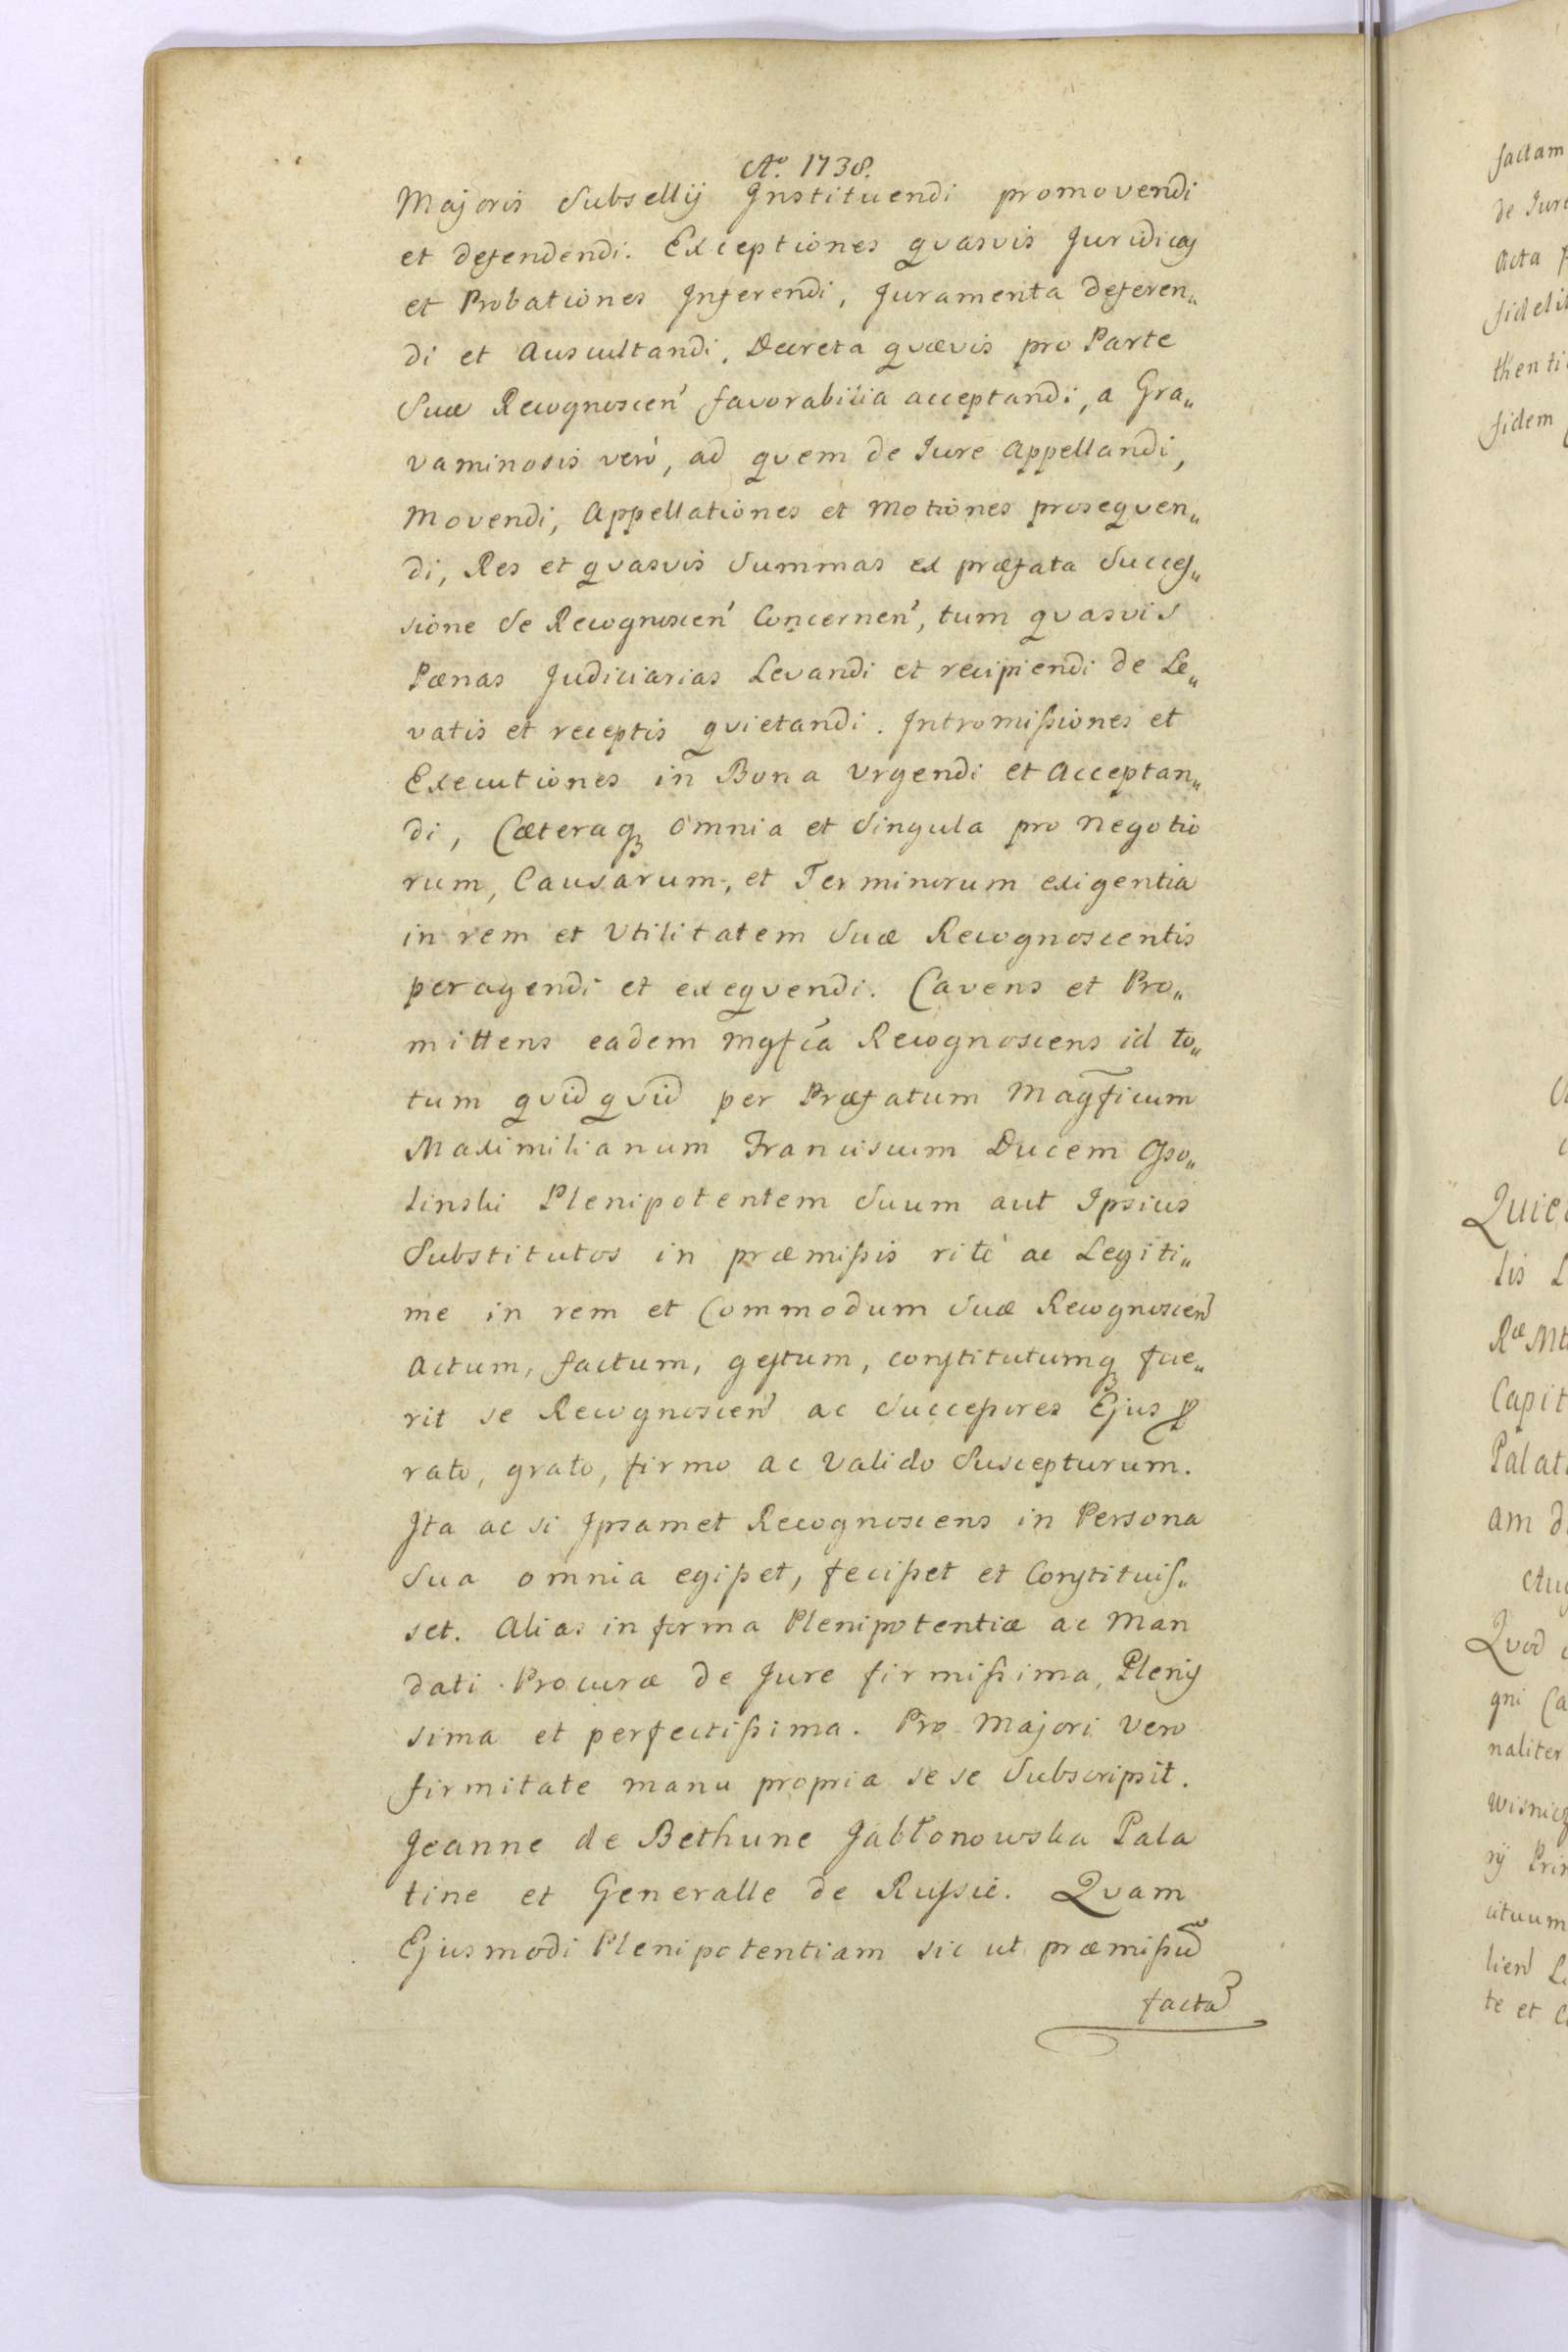 Aº. 1738.
Majoris Subsellij Instituendi promovendi
et defendendi. Exceptiones quasvis Juridicas
et Probationes Inferendi, Juramenta deferen„
di et Auscultandi. Decreta quævis pro Parte
Suæ Recognoscen' favorabilia acceptandi, a Gra„
vaminosis verò, ad quem de Iure Appellandi,
Movendi, Appellationes et Motiones prosequen„
di, Res et quasvis Summas ex præfata Succes„
sione se Recognoscen' Concernen', tum quasvis
Pænas Judiciarias Levandi et recipiendi de Le„
vatis et receptis quietandi. Intromißiones et
Executiones in Bona Urgendi et Acceptan„
di, Cæteraqꝫ omnia et Singula pro Negotio
rum, Causarum, et Terminorum exigentia
in rem et Utilitatem Suæ Recognoscentis
peragendi et exequendi. Cavens et Pro„
mittens eadem Mgfca Recognoscens id to„
tum quidquid per Præfatum Magficum
Maximilianum Franciscum Ducem Osso„
linski Plenipotentem Suum aut Ipsius
Substitutos in præmißis ritè ac Legiti„
me in rem et Commodum Suæ Recognoscen'
Actum, factum, gestum, constitutumqꝫ fue„
rit se Recognoscen' ac Succeßores Ejus ꝓ
rato, grato, firmo ac Valido Suscepturum.
Ita ac si Ipsamet Recognoscens in Persona
Sua omnia egißet, fecißet et Constituis„
set. Alias in forma Plenipotentiæ ac Man
dati Procuræ de Jure firmißima, Plenis
sima et perfectißima. Pro Majori Vero
firmitate manu propria sese Subscripsit.
Jeanne de Bethune Jabłonowska Pala
tine et Generalle de Rußie. Quam
Ejusmodi Plenipotentiam sic ut præmißũ
facta
factam
de Jure
Acta
fidelit
thenti
fidem
Quie
lis
Ræ
Capit
Palat
am
Quod
gni
naliter
Wisnic
ij
lien'
te et